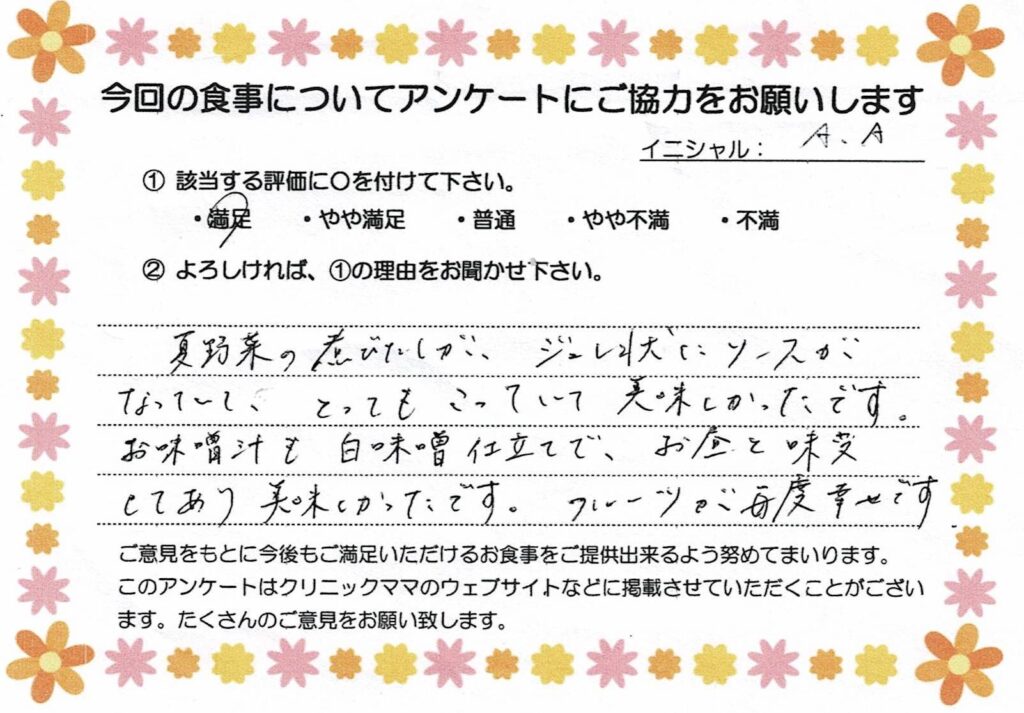 今回の食事についてアンケートにご協力をお願いします
イニシャル： A.A
① 該当する評価に〇を付けて下さい。
・満足 ・やや満足 ・普通 ・やや不満 ・不満
② よろしければ、①の理由をお聞かせ下さい。
夏野菜の煮びたしが、ジュレ状にソースが
なっていて、とってもこっていて美味しかったです。
お味噌汁も白味噌仕立てで、お昼と味変
してあり美味しかったです。フルーツが毎度幸せです
ご意見をもとに今後もご満足いただけるお食事をご提供出来るよう努めてまいります。
このアンケートはクリニックママのウェブサイトなどに掲載させていただくことがござい
ます。たくさんのご意見をお願い致します。